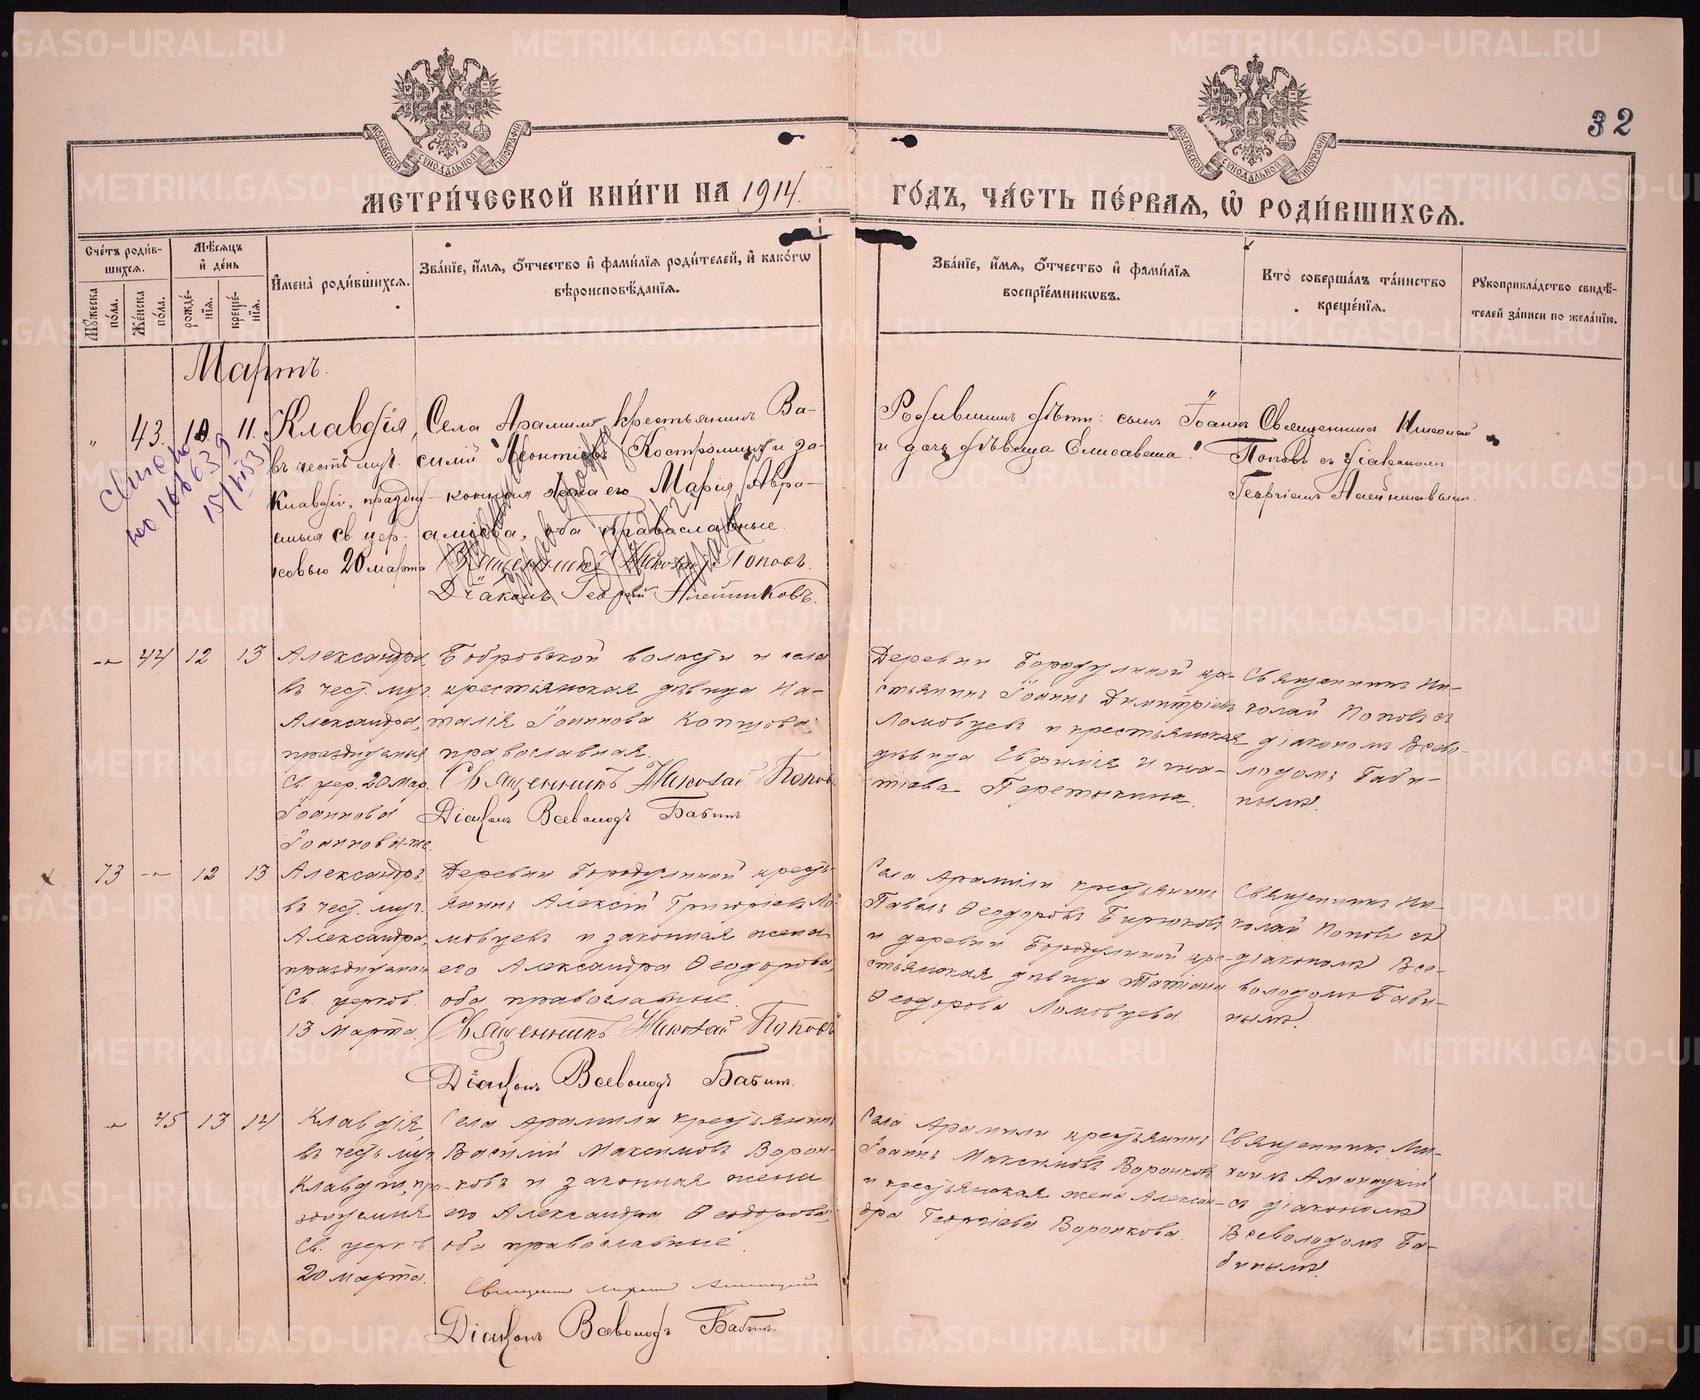 32
МЕТРИ́ЧЕСКОЙ КНИ́ГИ НА 1914. ГО́ДЪ, ЧА́СТЬ ПЕ́РВАЯ, Ѽ РОДИ́ВШИХСЯ.
Сче́тъ роди́в-
шихся.
Мѣ́сяцъ
и҆ де́нь
Мꙋ́жеска по́ла.
Же́нска по́ла.
рожде́-
нїя.
креще́-
нїя.
И҆мена̀ роди́вшихся.
Зва́нїе, и҆́мя, ѻ҆́тчество и҆ фами́лїя роди́телей, и҆ како́гѡ
вѣроисповѣ́данїя.
Зва́нїе, и҆́мя, ѻ҆́тчество и҆ фами́лїя
воспрїе́мниковъ.
Кто̀ соверша́лъ та́инство
креще́нїя.
Рꙋкоприкла́дство свидѣ́-
телей за́писи по жела́нїю.
Мартъ.
" 43. 10. 11.
Клавдія,
въ честь муч.
Клавдіи, праздну-
емыя св. цер-
ковью 20 марта
Села Арамили крестьянинъ Ва-
силій Леонтіевъ Костромин и за-
конная жена его Марія Авра-
аміева, оба православные.
Священникъ Николай Поповъ.
Діаконъ Георгій Алейниковъ.
Родившихъ дѣти: сынъ Іоаннъ
и дочь дѣвица Елисавета.
Священникъ Николай
Поповъ съ діакономъ
Георгіемъ Алейниковымъ.
44 12 13
Александра
въ чест. муч.
Александры,
празднуемыя
Св. цер. 20 мар.
Іоаннова
Бобровской волости и села
крестьянская дѣвица На-
талія Іоаннова Копцова,
православная.
Священникъ Николай Поповъ
Діаконъ Всеволодъ Бабинъ
Деревни Бородулиной кре-
стьянинъ Іоаннъ Димитріевъ
Ломовцевъ и крестьянская
дѣвица Евфимія Игна-
тіева
Священникъ Ни-
колай Поповъ съ
діакономъ Всево-
лодомъ Баби-
нымъ.
73 12 13
Александръ
въ чест. муч.
Александра,
празднуемаго
Св. церков.
13 марта.
Деревни Бородулиной кресть-
янинъ Алексій Григоріевъ Ло-
мовцевъ и законная жена
его Александра Ѳеодорова,
оба православные.
Священникъ Николай Поповъ
Діаконъ Всеволодъ Бабинъ.
Села Арамили крестьянинъ
Павелъ Ѳеодоровъ Бирюковъ
и деревни Бородулиной кре-
стьянская дѣвица Татіана
Ѳеодорова Ломовцева.
Священникъ Ни-
колай Поповъ съ
діакономъ Все-
володомъ Баби-
нымъ.
45 13 14
Клавдія,
въ честь муч.
Клавдіи, пра-
зднуемыя
Св. церков.
20 марта.
Села Арамили крестьянинъ
Василій Максимовъ Ворон-
ковъ и законная жена
его Александра Ѳеодорова,
оба православные.
Діаконъ Всеволодъ Бабинъ.
Села Арамили крестьянинъ
Іоаннъ Максимовъ Воронковъ
и крестьянская жена Алексан-
дра Георгіева Воронкова.
Священникъ Ми-
хаилъ
съ діакономъ
Всеволодомъ Ба-
бинымъ.
METRIKI.GASO-URAL.RU